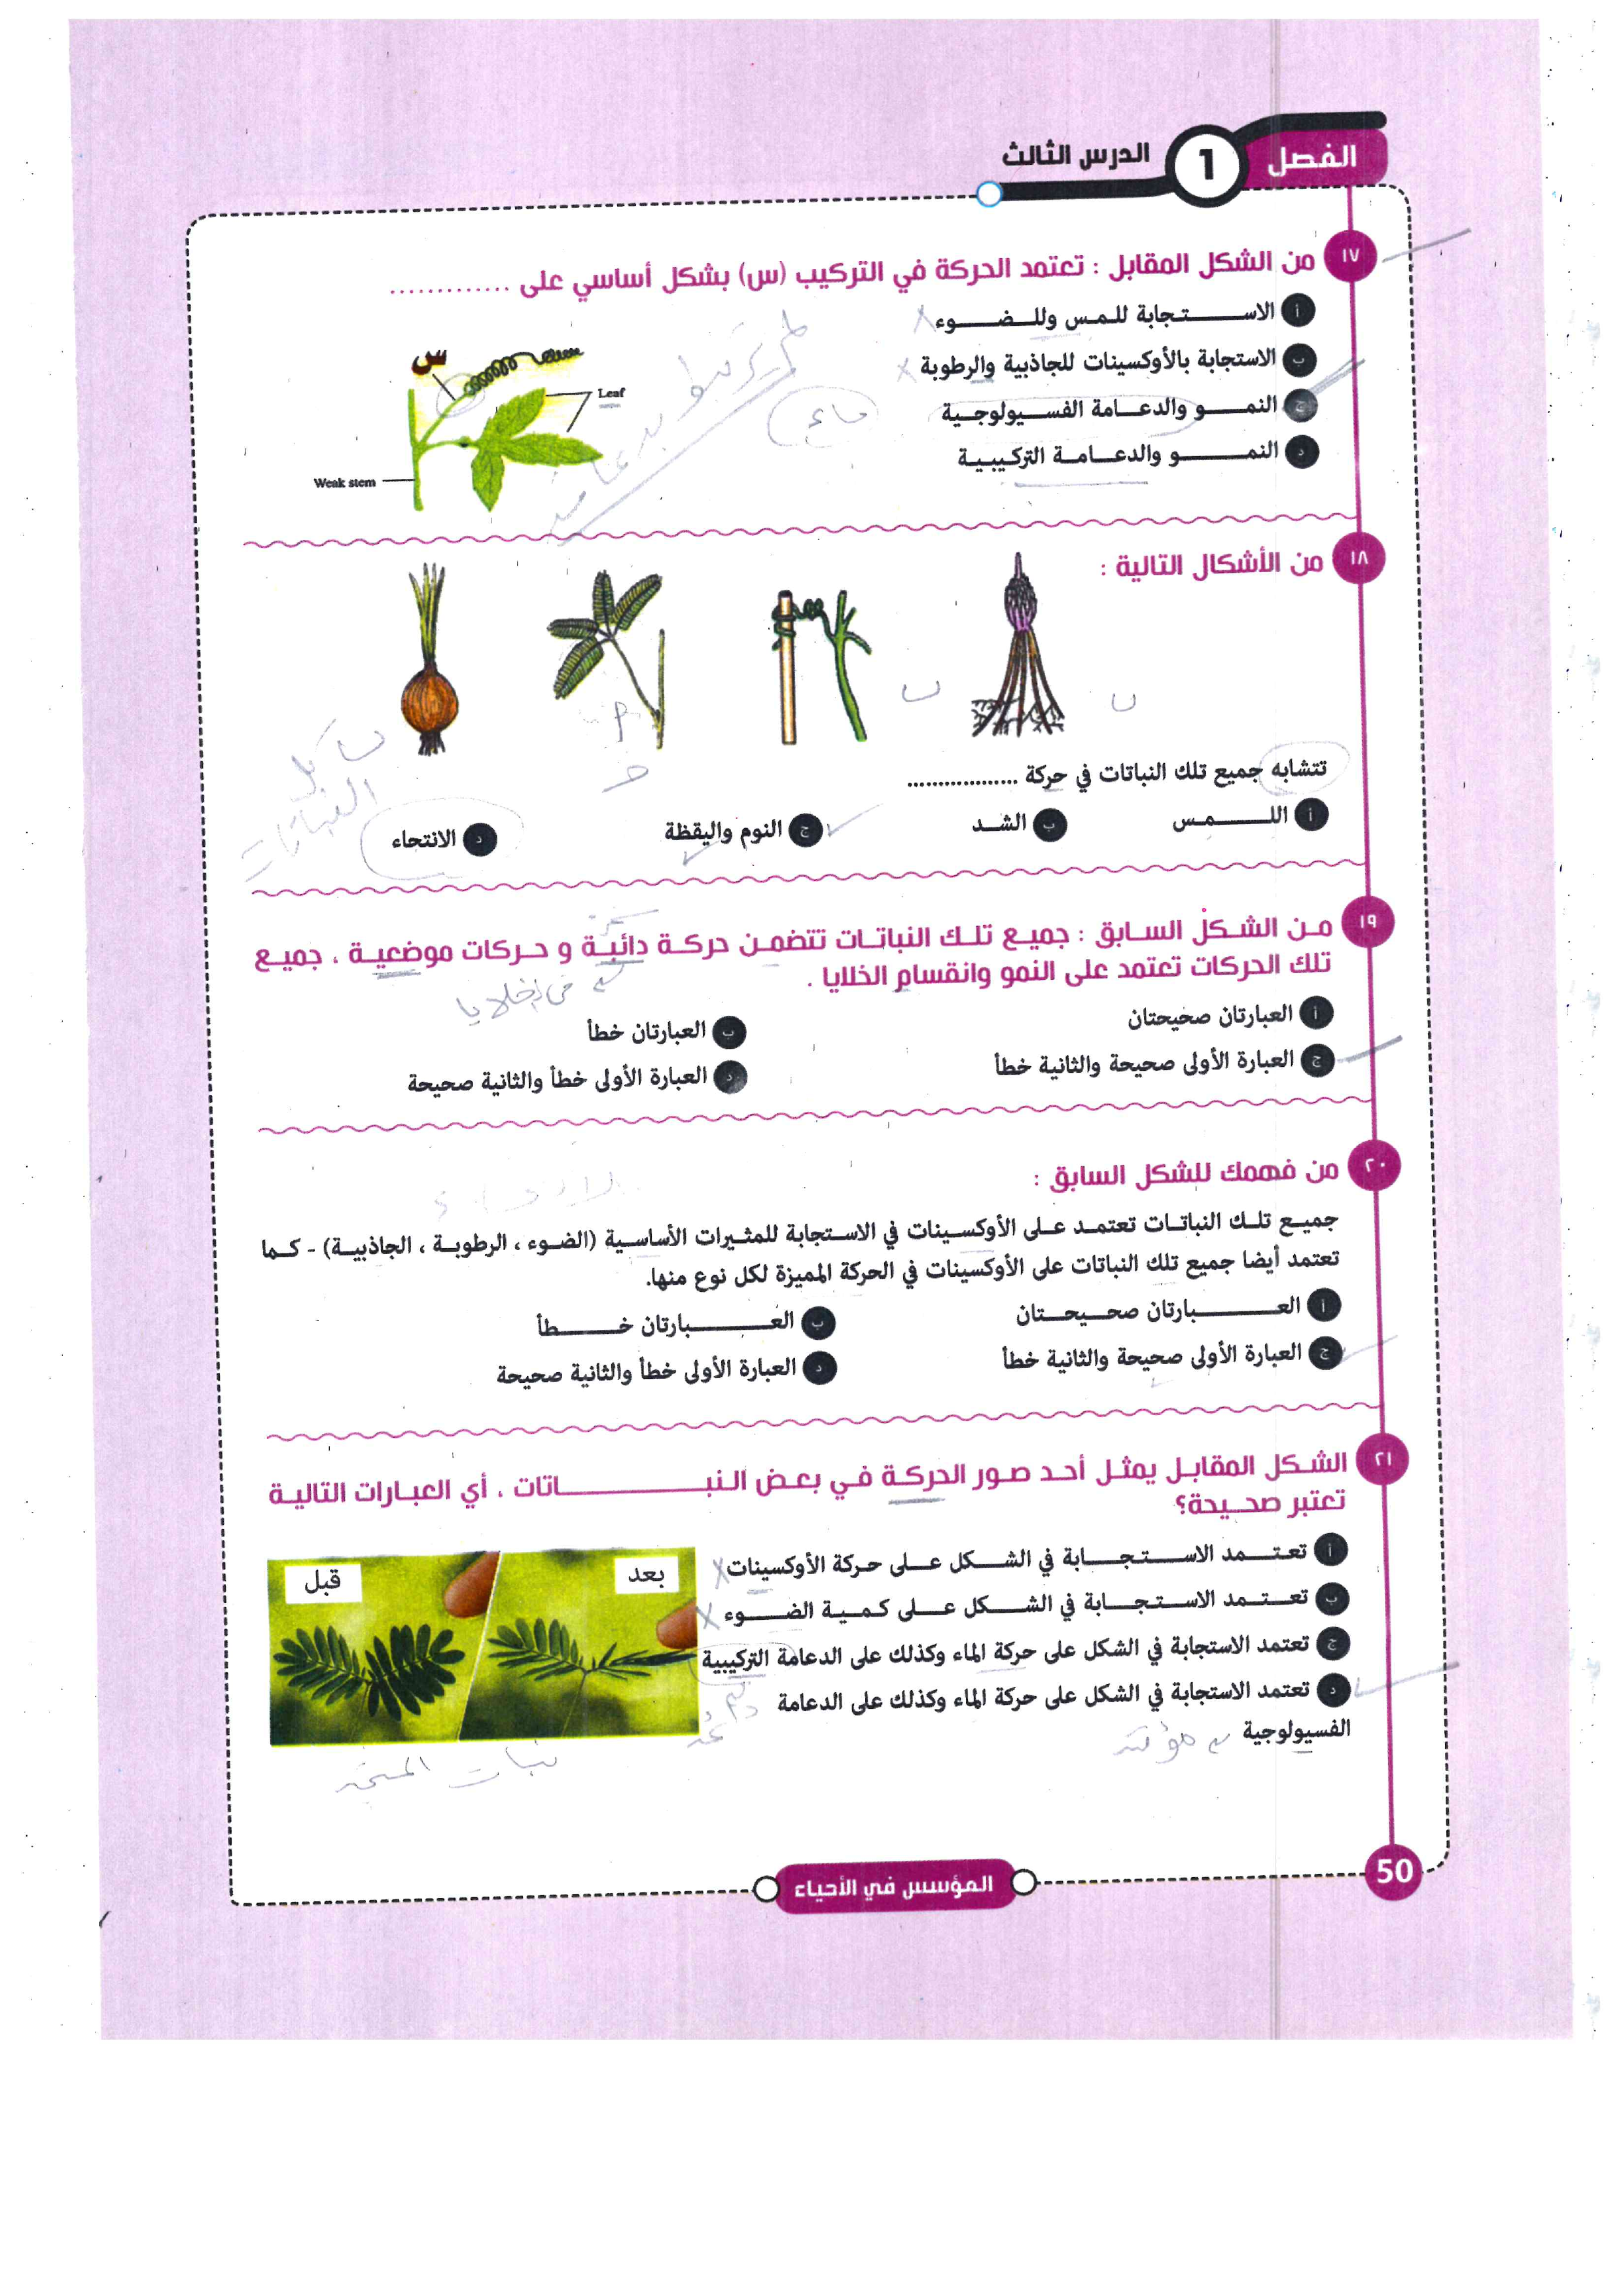 الفصل 1 الدرس الثالث
١٧ من الشكل المقابل : تعتمد الحركة في التركيب (س) بشكل أساسي على .............
أ الاستجابة للمس وللضوء
ب الاستجابة بالأوكسينات للجاذبية والرطوبة
ج النمو والدعامة الفسيولوجية
د النمو والدعامة التركيبية
س
Leaf
Weak stem
ماء
١٨ من الأشكال التالية :
تتشابه جميع تلك النباتات في حركة ..................
أ اللمس
ب الشد
ج النوم واليقظة
د الانتحاء
كل النباتات
١٩ من الشكل السابق : جميع تلك النباتات تتضمن حركة دائبة و حركات موضعية ، جميع
تلك الحركات تعتمد على النمو وانقسام الخلايا .
أ العبارتان صحيحتان
ب العبارتان خطأ
ج العبارة الأولى صحيحة والثانية خطأ
د العبارة الأولى خطأ والثانية صحيحة
٢٠ من فهمك للشكل السابق :
جميع تلك النباتات تعتمد على الأوكسينات في الاستجابة للمثيرات الأساسية (الضوء ، الرطوبة ، الجاذبية) - كما
تعتمد أيضا جميع تلك النباتات على الأوكسينات في الحركة المميزة لكل نوع منها.
أ العبارتان صحيحتان
ب العبارتان خطأ
ج العبارة الأولى صحيحة والثانية خطأ
د العبارة الأولى خطأ والثانية صحيحة
٢١ الشكل المقابل يمثل أحد صور الحركة في بعض النباتات ، أي العبارات التالية
تعتبر صحيحة؟
أ تعتمد الاستجابة في الشكل على حركة الأوكسينات
ب تعتمد الاستجابة في الشكل على كمية الضوء
ج تعتمد الاستجابة في الشكل على حركة الماء وكذلك على الدعامة التركيبية
د تعتمد الاستجابة في الشكل على حركة الماء وكذلك على الدعامة
الفسيولوجية
مؤقتة
قبل
بعد
نبات المستحية
50
المؤسس في الأحياء